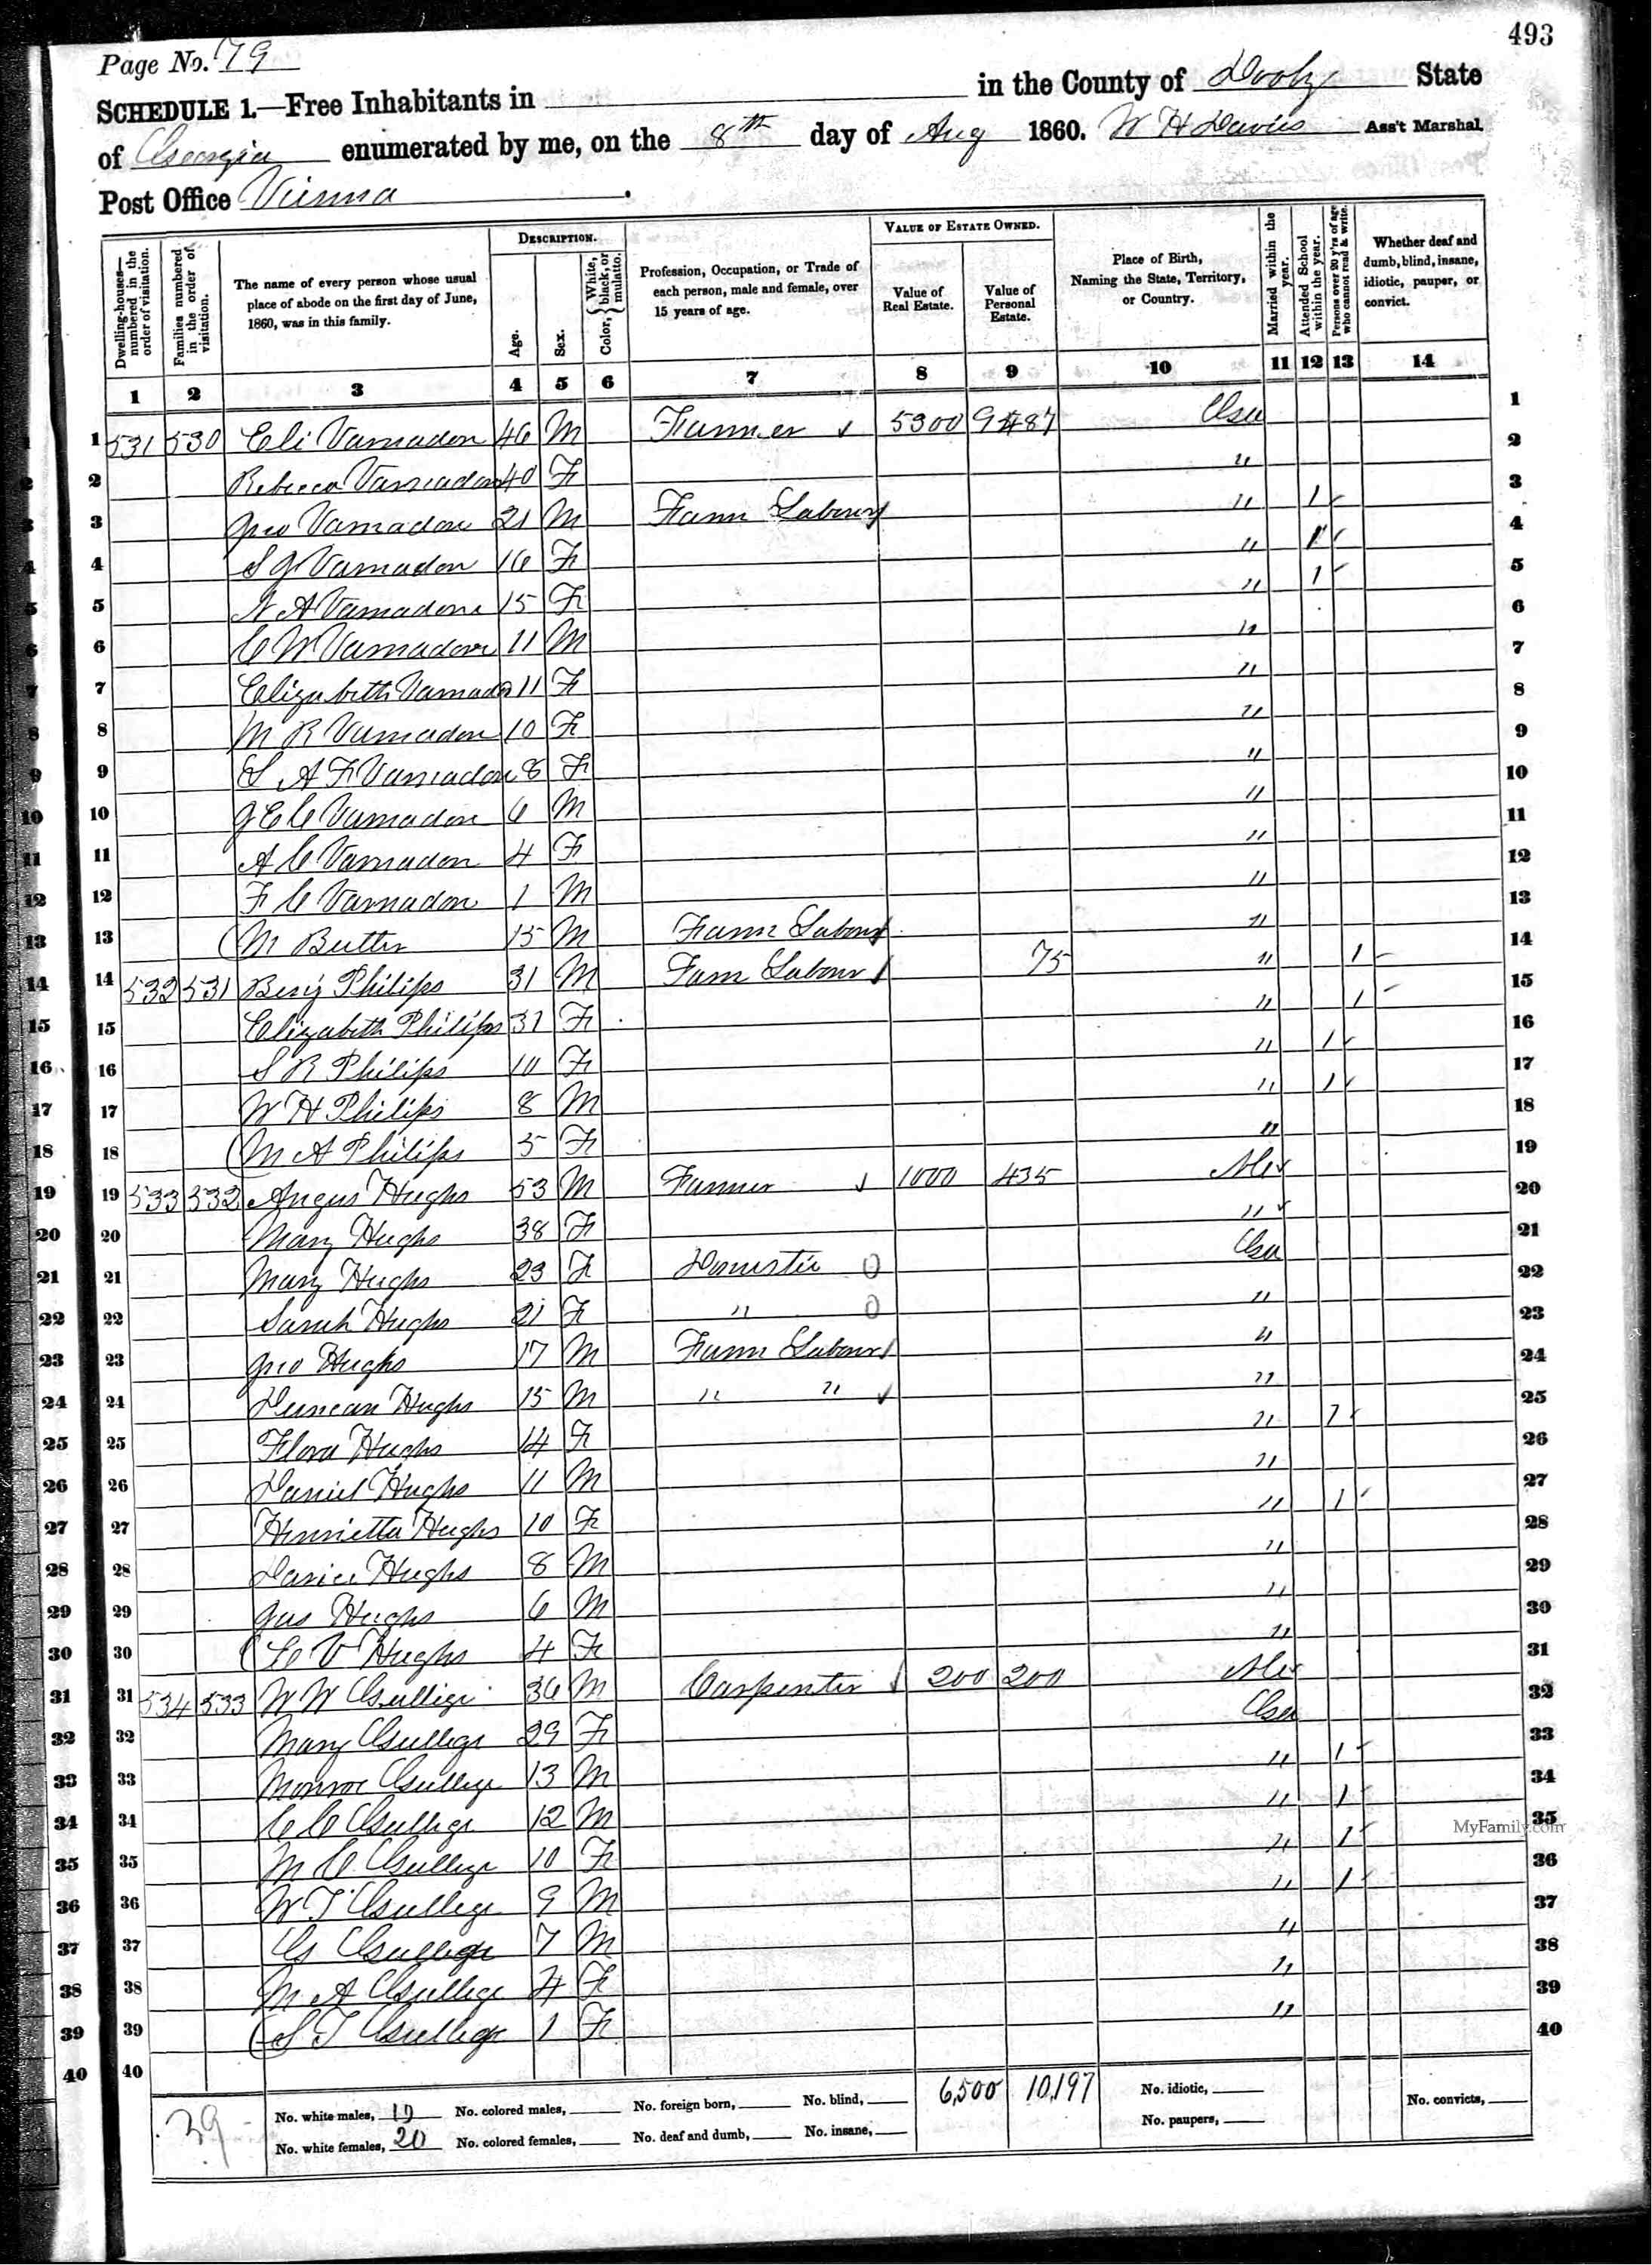 493
Page No. 79
SCHEDULE 1.—Free Inhabitants in in the County of Dooly State
of Georgia enumerated by me, on the 8th day of Aug 1860. W H Davies Ass't Marshal.
Post Office Vienna
Dwelling-houses— numbered in the order of visitation.
Families numbered in the order of visitation.
The name of every person whose usual place of abode on the first day of June, 1860, was in this family.
DESCRIPTION.
Age.
Sex.
Color, {White, black, or mulatto.
Profession, Occupation, or Trade of each person, male and female, over 15 years of age.
VALUE OF ESTATE OWNED.
Value of Real Estate.
Value of Personal Estate.
Place of Birth, Naming the State, Territory, or Country.
Married within the year.
Attended School within the year.
Persons over 20 y'rs of age who cannot read & write.
Whether deaf and dumb, blind, insane, idiotic, pauper, or convict.
1 2 3 4 5 6 7 8 9 10 11 12 13 14
1 531 530 Eli Vamadon 46 M Farmer 5300 9487 Geo 1
2 Rebecca Vamadon 40 F " 2
3 Jno Vamadon 21 M Farm Labour " 1 3
4 S J Vamadon 16 F " 1 4
5 N A Vamadon 15 F " 1 5
6 C W Vamadon 11 M " 6
7 Elizabeth Vamadon 11 F " 7
8 M R Vamadon 10 F " 8
9 S A F Vamadon 8 F " 9
10 J E C Vamadon 6 M " 10
11 A C Vamadon 4 F " 11
12 F C Vamadon 1 M " 12
13 M Butler 15 M Farm Labour " 13
14 532 531 Benj Philips 31 M Farm Labour 75 " 1 14
15 Elizabeth Philips 31 F " 1 15
16 S R Philips 10 F " 1 16
17 W H Philips 8 M " 1 17
18 M A Philips 5 F " 18
19 533 532 Angus Hughs 53 M Farmer 1000 435 19
20 Mary Hughs 38 F " 20
21 Mary Hughs 23 F Domestic Geo 21
22 Sarah Hughs 21 F " " 22
23 Jno Hughs 17 M Farm Labour " 23
24 Duncan Hughs 15 M " " " 24
25 Flora Hughs 14 F " 1 25
26 Daniel Hughs 11 M " 26
27 Henrietta Hughs 10 F " 1 27
28 Hughs 8 M " 28
29 Jas Hughs 6 M " 29
30 L V Hughs 4 F " 30
31 534 533 W W Gullige 36 M Carpenter 200 200 31
32 Mary Gullege 29 F Geo 32
33 Monroe Gullege 13 M " 1 33
34 C C Gullege 12 M " 1 34
35 M C Gullege 10 F " 1 35
36 W T Gullege 9 M " 1 36
37 G Gullege 7 M " 37
38 M A Gullege 4 F " 38
39 S T Gullege 1 F " 39
40 40
MyFamily.com
39
No. white males, 19 No. colored males, No. foreign born, No. blind, 6,500 10,197 No. idiotic, No. convicts,
No. white females, 20 No. colored females, No. deaf and dumb, No. insane, No. paupers,